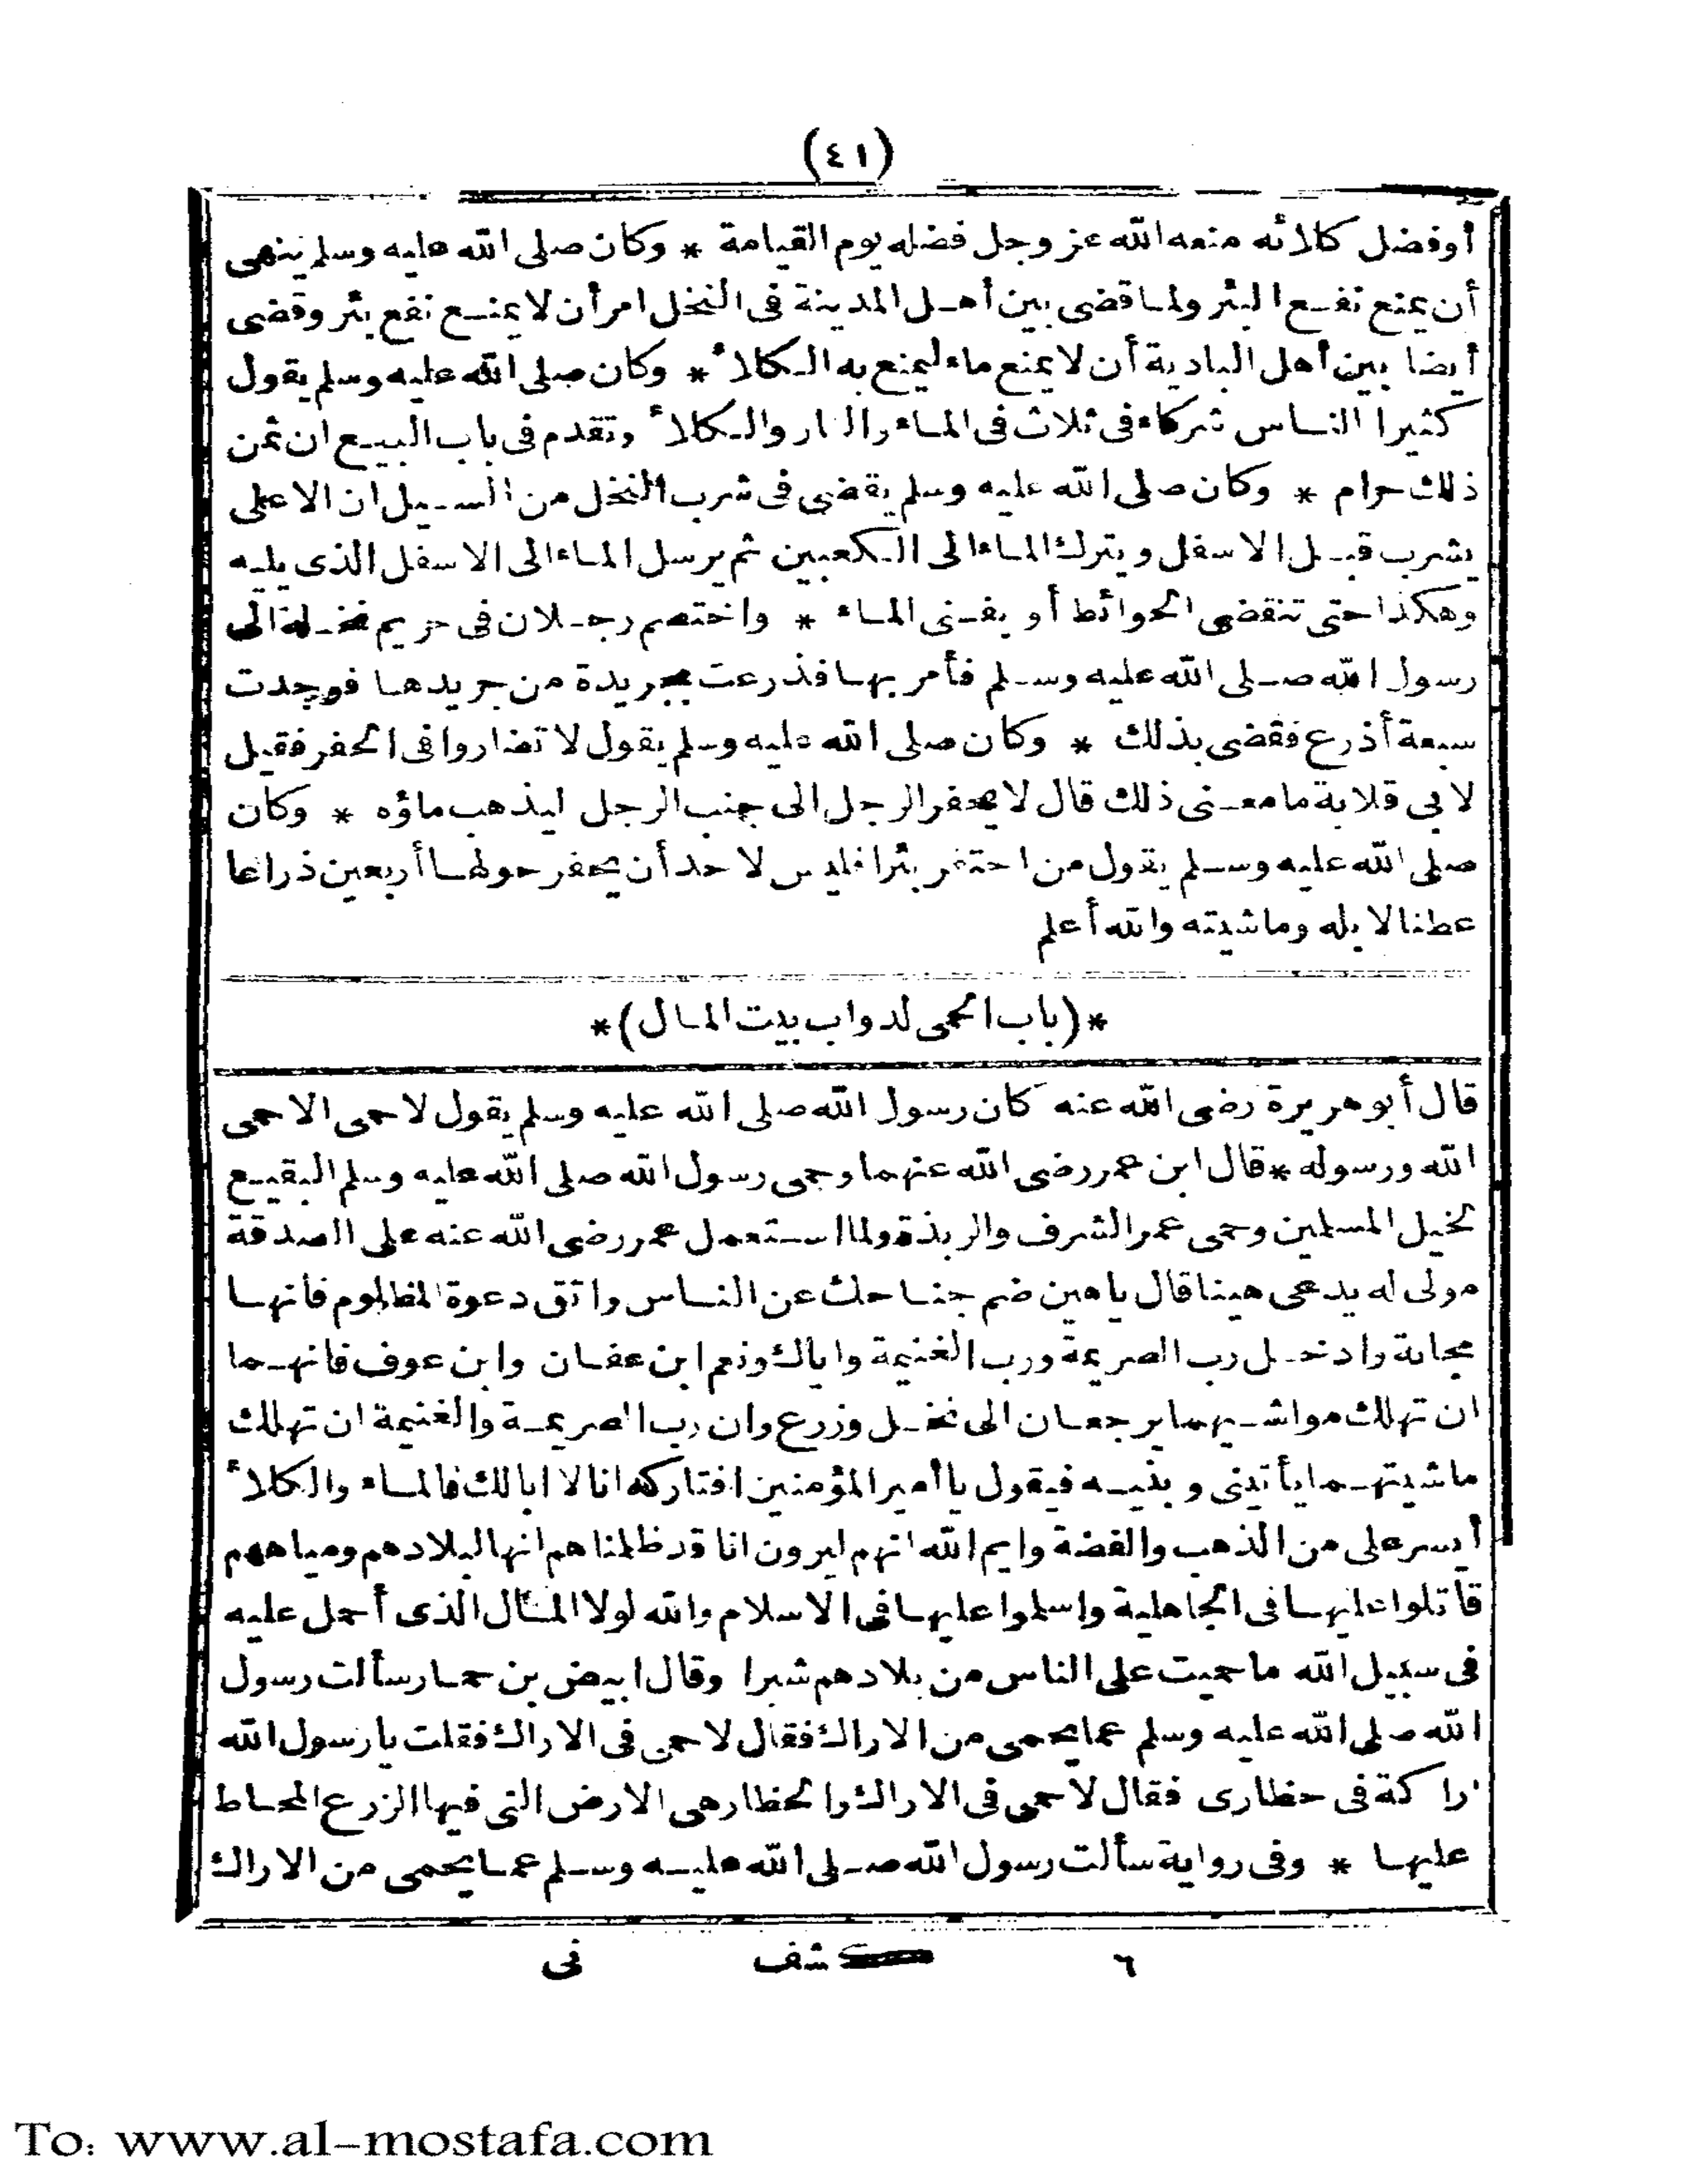 (٤١)
أوفضل كلائه منعه الله عز وجل فضله يوم القيامة * وكان صلى الله عليه وسلم ينهى
أن يمنع نفع البئر ولما قضى بين أهل المدينة فى النخل امر أن لا يمنع نفع بئر وقضى
أيضا بين أهل البادية أن لا يمنع ماء ليمنع به الكلأ * وكان صلى الله عليه وسلم يقول
كثيرا الناس شركاء فى ثلاث فى الماء والنار والكلأ وتقدم فى باب البيع ان ثمن
ذلك حرام * وكان صلى الله عليه وسلم يقضى فى شرب النخل من السيل ان الاعلى
يشرب قبل الاسفل ويترك الماء الى الكعبين ثم يرسل الماء الى الاسفل الذى يليه
وهكذا حتى تنقضى الحوائط أو يفنى الماء * واختصم رجلان فى حريم نخلة الى
رسول الله صلى الله عليه وسلم فأمر بها فذرعت بجريدة من جريدها فوجدت
سبعة أذرع فقضى بذلك * وكان صلى الله عليه وسلم يقول لا تضاروا فى الحفر فقيل
لابى قلابة ما معنى ذلك قال لا يحفر الرجل الى جنب الرجل ليذهب ماؤه * وكان
صلى الله عليه وسلم يقول من احتفر بئرا فليس لاحد أن يحفر حولها أربعين ذراعا
عطنا لابله وماشيته والله أعلم
*(باب الحمى لدواب بيت المال)*
قال أبو هريرة رضى الله عنه كان رسول الله صلى الله عليه وسلم يقول لا حمى الا حمى
الله ورسوله * قال ابن عمر رضى الله عنهما وحمى رسول الله صلى الله عليه وسلم البقيع
لخيل المسلمين وحمى عمر الشرف والربذة ولما استعمل عمر رضى الله عنه على الصدقة
مولى له يدعى هينا قال ياهين ضم جناحك عن الناس واتق دعوة المظلوم فانها
مجابة وادخل رب الصريمة ورب الغنيمة واياك ونعم ابن عفان وابن عوف فانهما
ان تهلك مواشيهما يرجعان الى نخل وزرع وان رب الصريمة والغنيمة ان تهلك
ماشيتهما يأتينى وبنيه فيقول يا أمير المؤمنين افتاركه انا لا ابالك فالماء والكلأ
أيسر على من الذهب والفضة وايم الله انهم ليرون انا قد ظلمناهم انها لبلادهم ومياههم
قاتلوا عليها فى الجاهلية واسلموا عليها فى الاسلام والله لولا المال الذى أحمل عليه
فى سبيل الله ما حميت على الناس من بلادهم شبرا وقال ابيض بن حمار سألت رسول
الله صلى الله عليه وسلم عما يحمى من الاراك فقال لا حمى فى الاراك فقلت يا رسول الله
اراكة فى حظارى فقال لا حمى فى الاراك والحظار هى الارض التى فيها الزرع المحاط
عليها * وفى رواية سألت رسول الله صلى الله عليه وسلم عما يحمى من الاراك
٦ كشف فى
To: www.al-mostafa.com